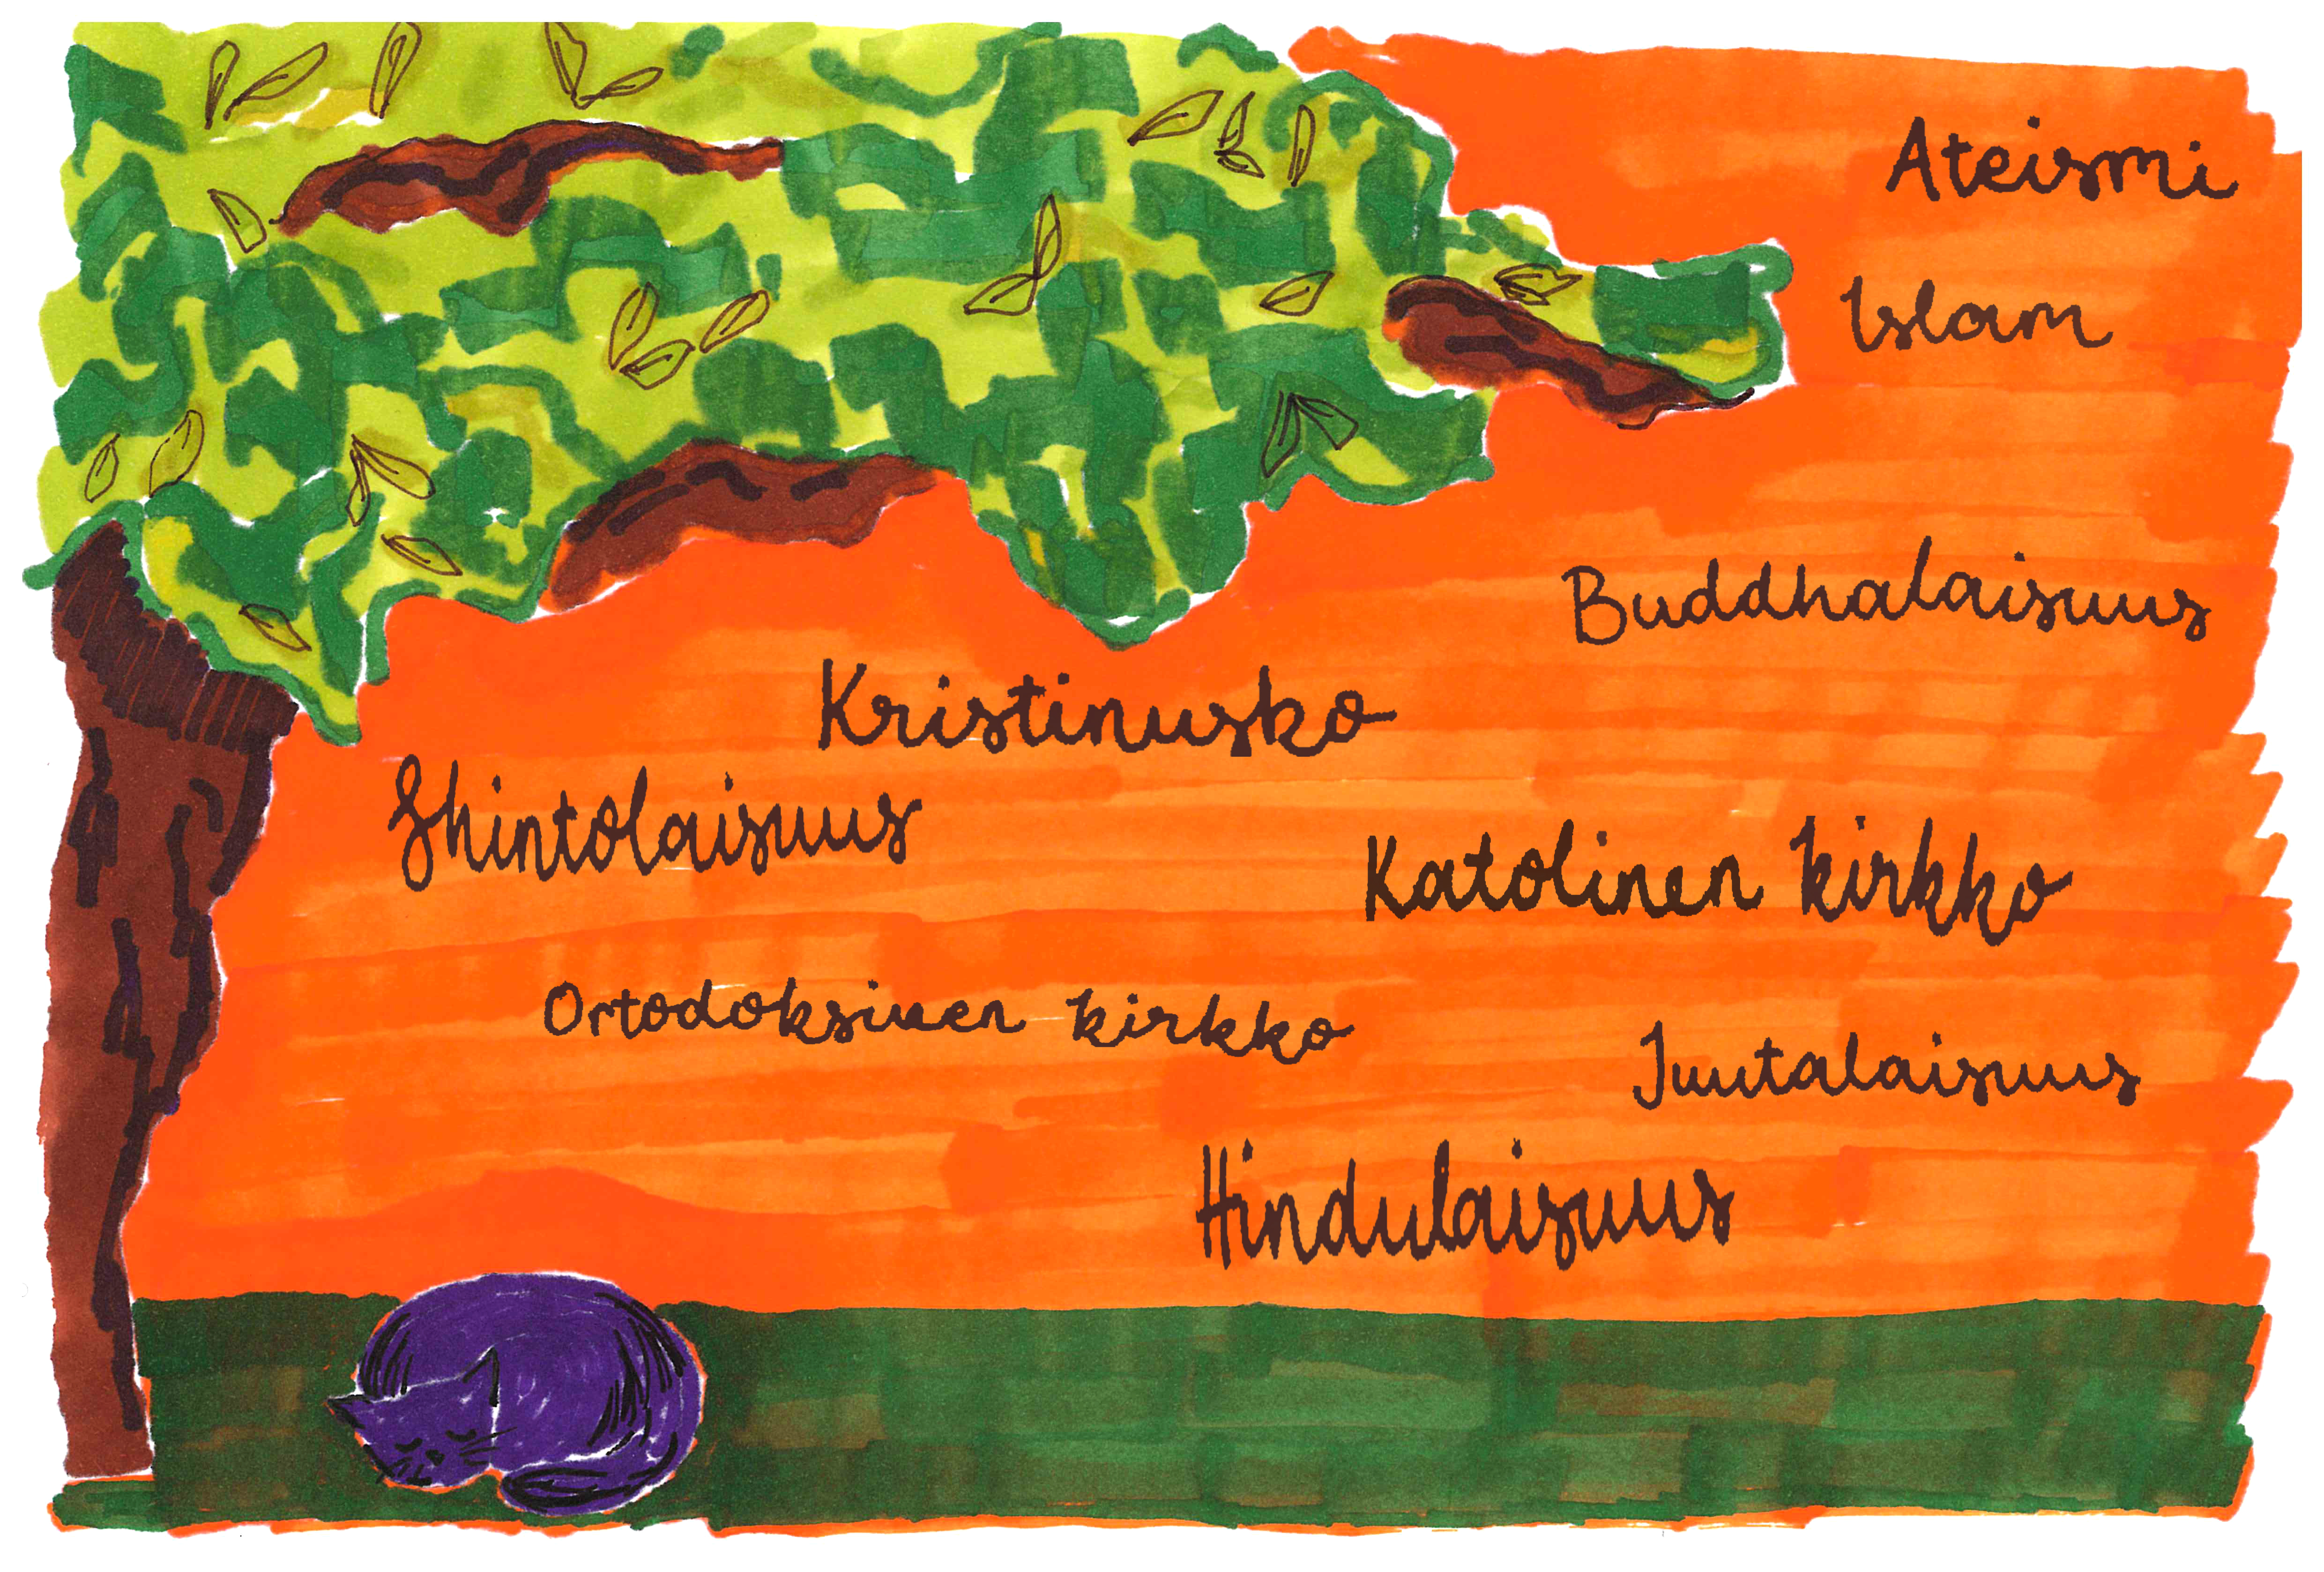 Ateismi
Islam
Buddhalaisuus
Kristinusko
Shintolaisuus
Katolinen kirkko
Ortodoksinen kirkko
Juutalaisuus
Hindulaisuus